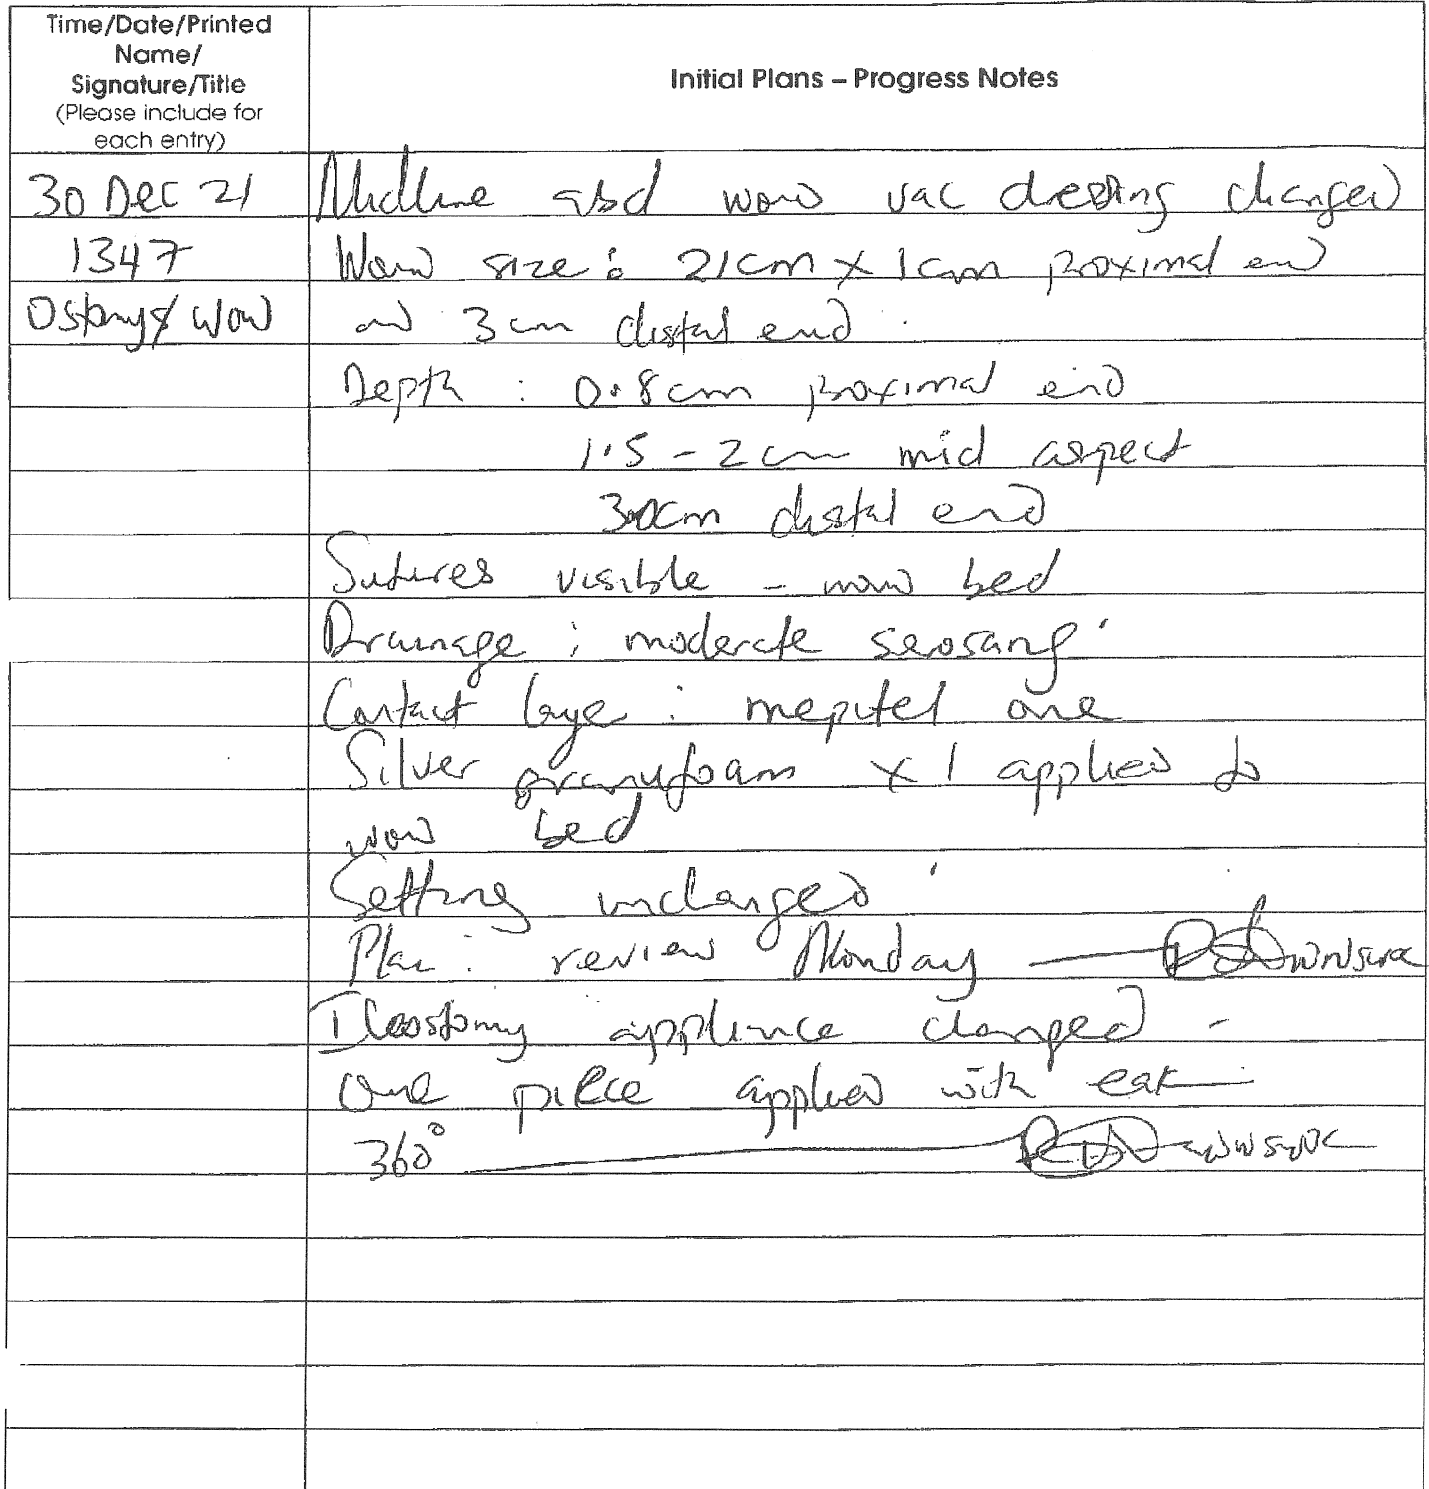 Time/Date/Printed
Name/
Signature/Title
(Please include for
each entry)
Initial Plans – Progress Notes
30 Dec 21
Midline abd wound vac dressing changed
1347
Wound size : 21cm x 1cm proximal end
Ostomy/ Wound
and 3cm distal end .
Depth : 0.8cm proximal end
1.5 - 2cm mid aspect
3.0cm distal end
Sutures visible - wound bed
Drainage : moderate serosang
Contact layer : mepitel one
Silver granufoam x 1 applied to
wound bed
Setting unchanged
Plan : review Monday
Ileostomy appliance changed -
One piece applied with eak
360°